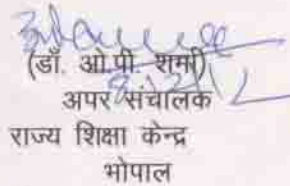 (डॉ. ओ.पी. शर्मा)
अपर संचालक
राज्य शिक्षा केन्द्र
भोपाल